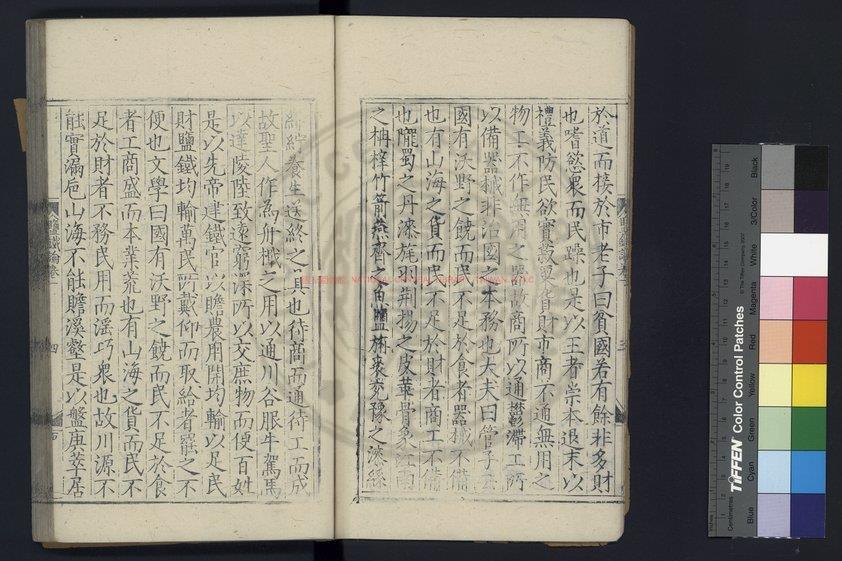 於道而接於市老子曰貧國若有餘非多財
也嗜慾衆而民躁也是以王者崇本退末以
禮義防民欲實菽粟貨財市商不通無用之
物工不作無用之器故商所以通鬱滯工所
以備器械非治國之本務也大夫曰管子云
國有沃野之饒而民不足於食者器械不備
也有山海之貨而民不足於財者商工不備
也隴蜀之丹漆旄羽荆揚之皮革骨象江南
之柟梓竹箭燕齊之魚鹽旃裘兖豫之漆絲
絺紵養生送終之具也待商而通待工而成
故聖人作為舟檝之用以通川谷服牛駕馬
以達陵陸致遠窮深所以交庶物而便百姓
是以先帝建鐵官以贍農用開均輸以足民
財鹽鐵均輸萬民所戴仰而取給者罷之不
便也文學曰國有沃野之饒而民不足於食
者工商盛而本業荒也有山海之貨而民不
足於財者不務民用而滛巧衆也故川源不
能實漏卮山海不能贍溪壑是以盤庚萃居
鹽鐵論卷一
三
鹽鐵論卷一
四
TIFFEN Color Control Patches
© The Tiffen Company, 2007
Black
3/Color
White
Magenta
Red
Yellow
Green
Cyan
Blue
Centimetres
Inches